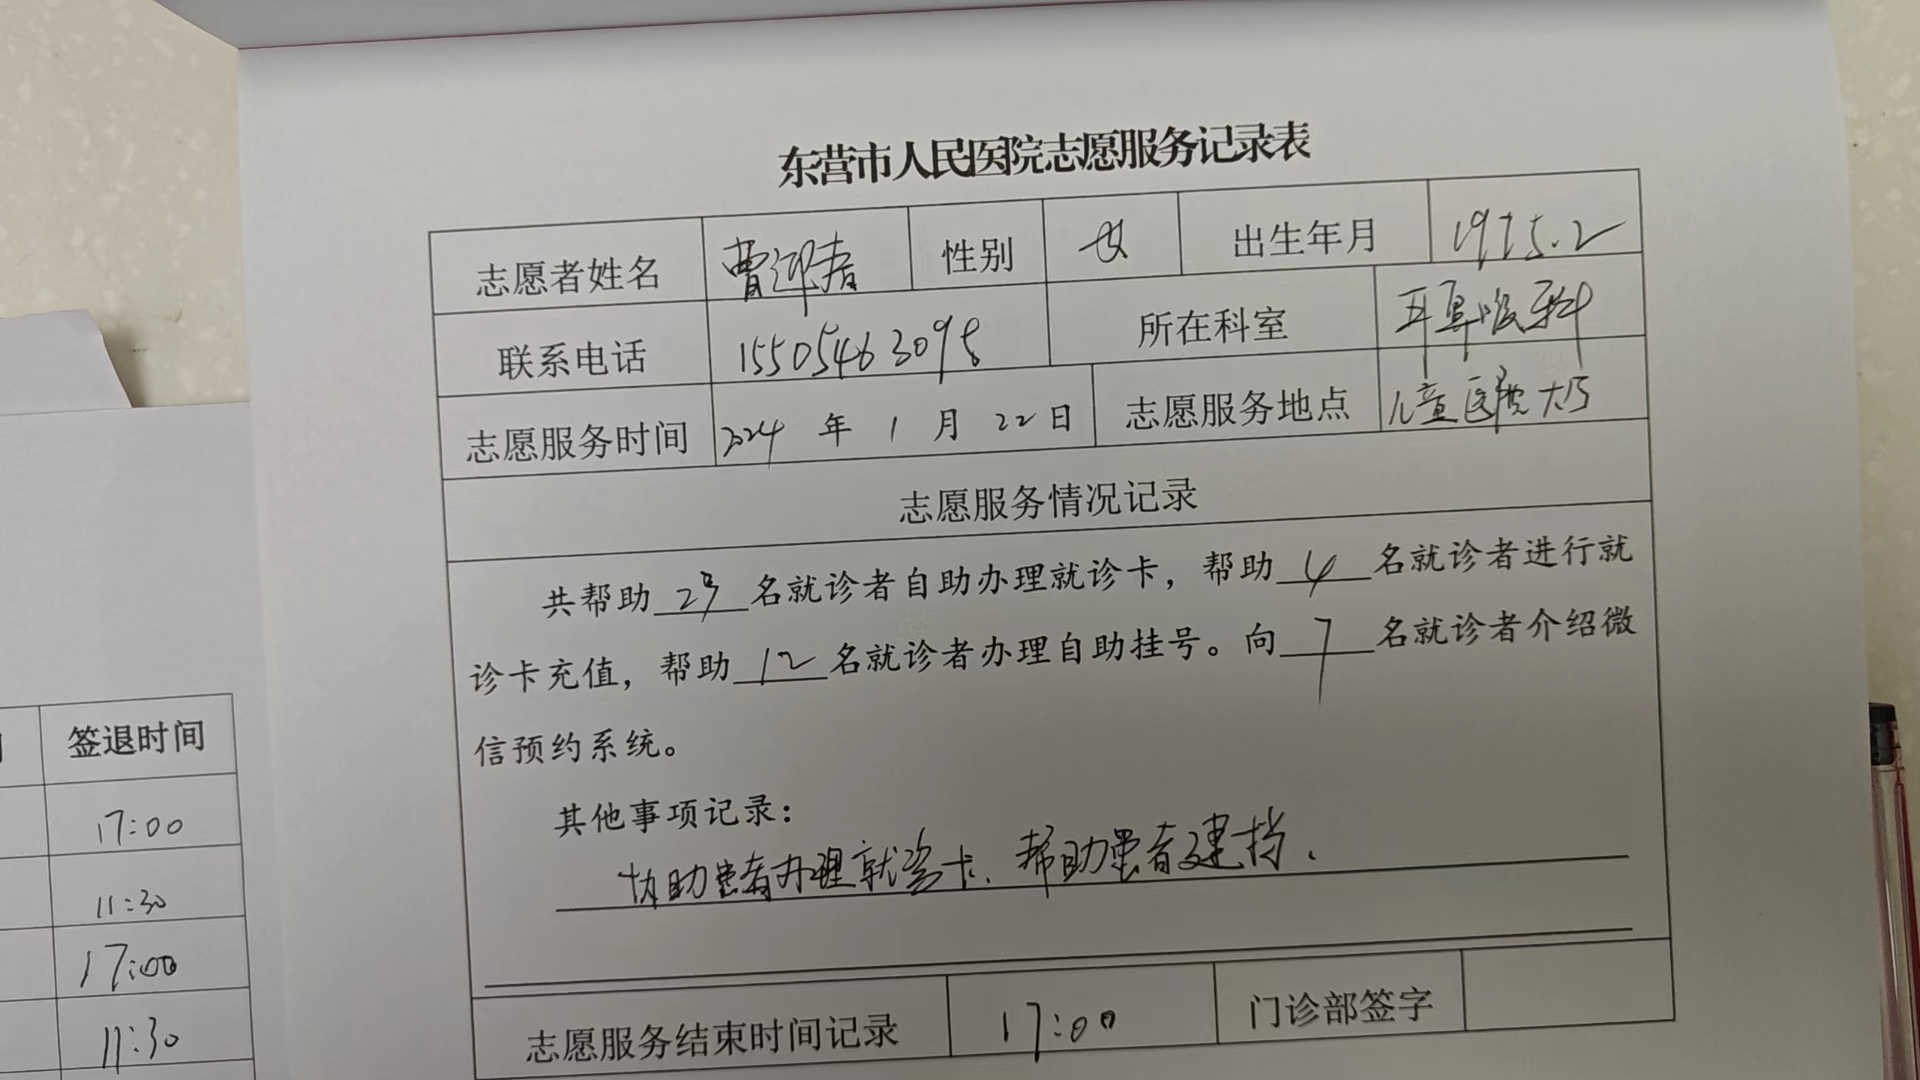 东营市人民医院志愿服务记录表
志愿者姓名 曹迎春 性别 女 出生年月 1975.2
联系电话 15505463098 所在科室 耳鼻喉科
志愿服务时间 2024 年 1 月 22 日 志愿服务地点 儿童医院大厅
志愿服务情况记录
共帮助 名就诊者自助办理就诊卡，帮助 4 名就诊者进行就
诊卡充值，帮助 12 名就诊者办理自助挂号。向 7 名就诊者介绍微
信预约系统。
其他事项记录：
协助患者办理就诊卡、帮助患者建档.
志愿服务结束时间记录 17:00 门诊部签字
签退时间
17:00
11:30
17:00
11:30